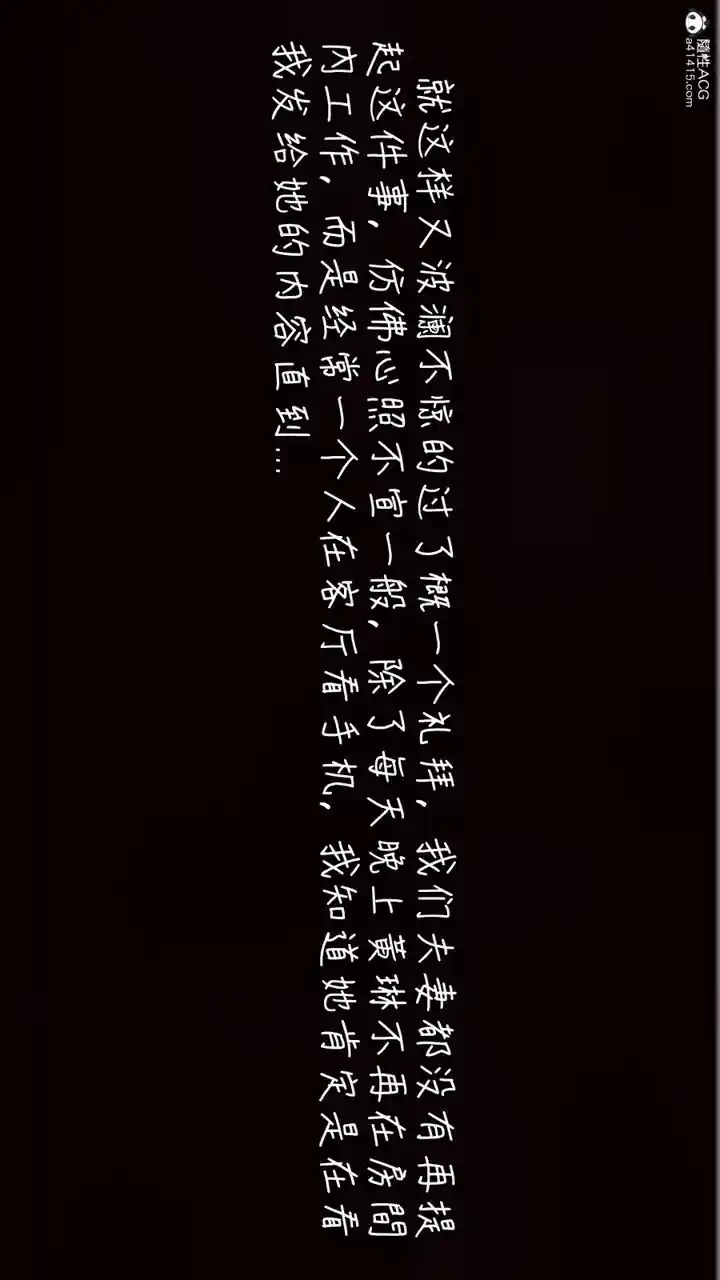 隨性ACG
a41415.com
就这样又波澜不惊的过了概一个礼拜，我们夫妻都没有再提
起这件事，仿佛心照不宣一般，除了每天晚上黄琳不再在房間
内工作，而是经常一个人在客厅看手机，我知道她肯定是在看
我发给她的内容直到...